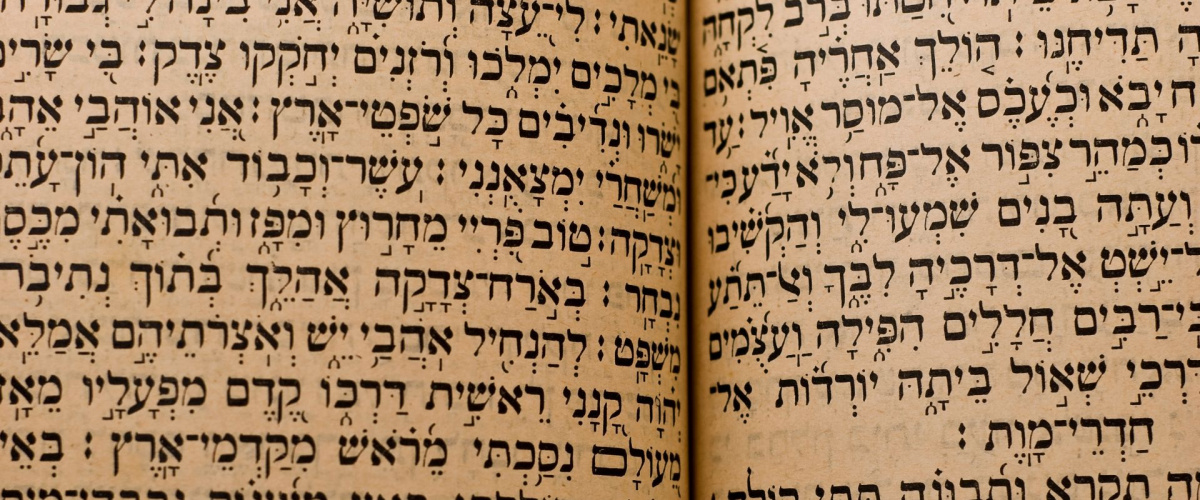 בְּרֹב לִקְחָהּ
תַּדִּיחֶנּוּ : הוֹלֵךְ אַחֲרֶיהָ פִּתְאֹם
יָבֹא וּכְעֶכֶס אֶל־מוּסַר אֱוִיל : עַד
כְּמַהֵר צִפּוֹר אֶל־פָּח וְלֹא יָדַע כִּי־
וְעַתָּה בָנִים שִׁמְעוּ־לִי וְהַקְשִׁיבוּ
יֵשְׂטְ אֶל־דְּרָכֶיהָ לִבֶּךָ וְאַל־תֵּתַע
כִּי־רַבִּים חֲלָלִים הִפִּילָה וַעֲצֻמִים
דַּרְכֵי שְׁאוֹל בֵּיתָהּ יוֹרְדוֹת אֶל־
חַדְרֵי־מָוֶת :
תִקְרָא וּתְבוּנָה תִּתֵּן קוֹלָהּ
שָׂנֵאתִי : לִי־עֵצָה וְתוּשִׁיָּה אֲנִי בִינָה לִי גְבוּרָה
בִּי מְלָכִים יִמְלֹכוּ וְרֹזְנִים יְחֹקְקוּ צֶדֶק : בִּי שָׂרִים
יָשֹׂרוּ וּנְדִיבִים כָּל שֹׁפְטֵי־אָרֶץ : אֲנִי אוֹהֲבַי
וּמְשַׁחֲרַי יִמְצָאֻנְנִי : עֹשֶׁר־וְכָבוֹד אִתִּי הוֹן־עָתֵק
וּצְדָקָה : טוֹב פִּרְיִי מֵחָרוּץ וּמִפָּז וּתְבוּאָתִי מִכֶּסֶף
נִבְחָר : בְּאֹרַח־צְדָקָה אֲהַלֵּךְ בְּתוֹךְ
מִשְׁפָּט : לְהַנְחִיל אֹהֲבַי יֵשׁ וְאֹצְרֹתֵיהֶם אֲמַלֵּא
יְהוָה קָנָנִי רֵאשִׁית דַּרְכּוֹ קֶדֶם מִפְעָלָיו מֵאָז
מֵעוֹלָם נִסַּכְתִּי מֵרֹאשׁ מִקַּדְמֵי־אָרֶץ :